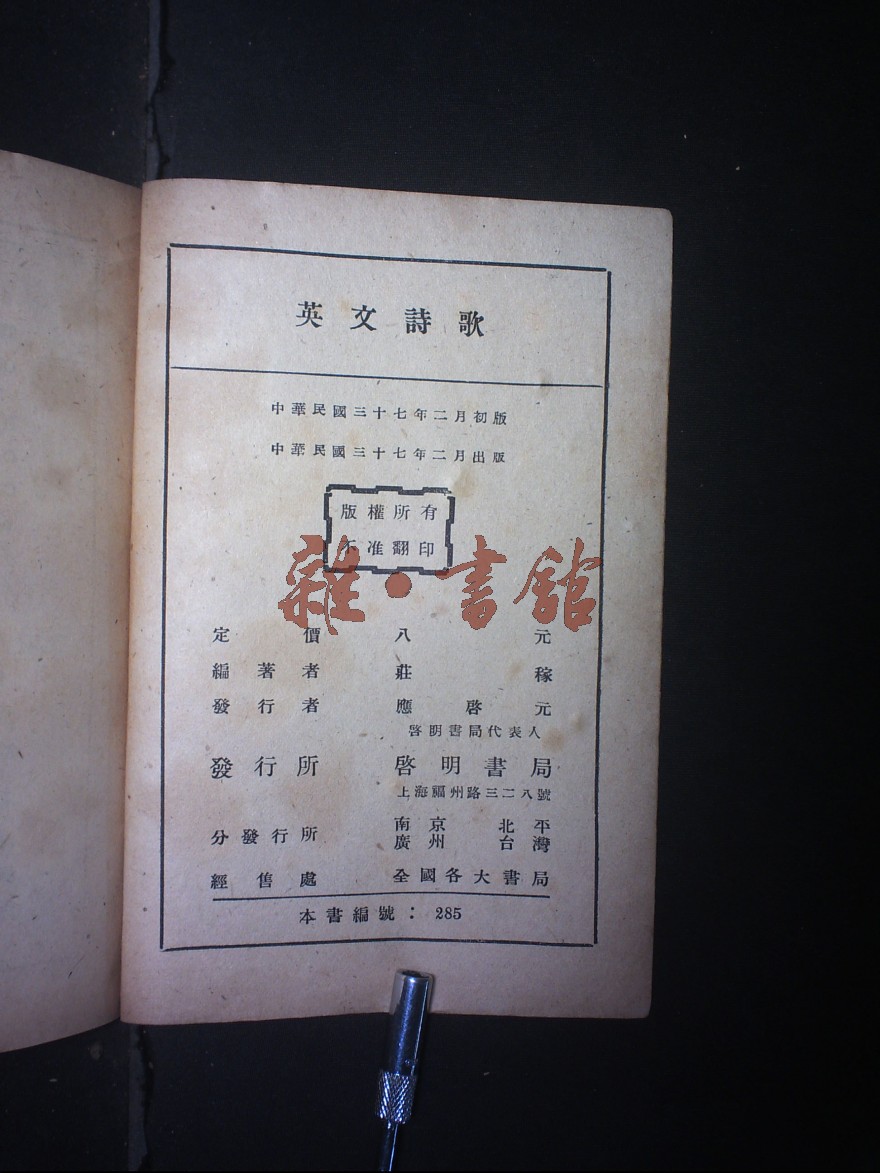 英文詩歌
中華民國三十七年二月初版
中華民國三十七年二月出版
版權所有
不准翻印
雜·書館
定價 八元
編著者 莊稼
發行者 應啓元
啓明書局代表人
發行所 啓明書局
上海福州路三二八號
分發行所 南京 北平
廣州 台灣
經售處 全國各大書局
本書編號：285